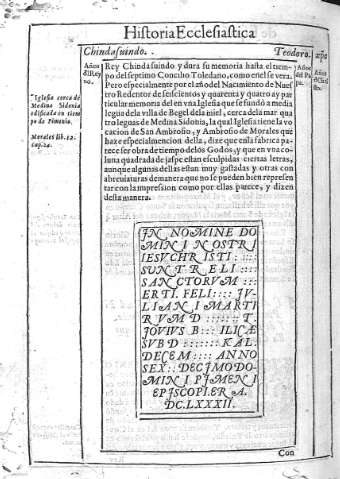 Historia Ecclesiastica
Chindasuindo.
Teodoro.
Años
del Rey
no.
Años
del Pa
pa.
Rey Chindasuindo y dura su memoria hasta el tiem-
po del septimo Concilio Toledano, como en el se vera.
Pero especialmente por el año del Nacimiento de Nues
tro Redentor de seiscientos y quarenta y quatro ay par
ticular memoria del en vna Iglesia que se fundò a media
legua dela villa de Begel dela miel, cerca dela mar qua
tro leguas de Medina Sidonia, la qual Iglesia tiene la vo
cacion de San Ambrosio, y Ambrosio de Morales que
haze especial mencion della, dize que en la fabrica pa-
rece ser obra de tiempo delos Godos, y que en vna co-
luna quadrada de jaspe estan esculpidas ciertas letras,
aunque algunas dellas estan muy gastadas y otras con
abreuiaturas de manera que no se pueden bien represen
tar con la impression como por ellas parece, y dizen
desta manera.
Iglesia cerca de
Medina Sidonia
edificada en tiem
po de
Morales lib. 12.
cap. 24.
IN NOMINE DO
MINI NOSTRI
IESV CHRISTI : ::::
SVNT RELI ::::
SANCTORVM :::
ERTI. FELI :::: JV-
LIANI MARTI
RVM D :::::: T.
JOVIVS B:: ILICÆ
SVB D :::::::: KAL.
DECEM :::: ANNO
SEX:: DECIMO DO-
MINI PIMENI
EPISCOPI. ER A.
DC.LXXXII.
Con